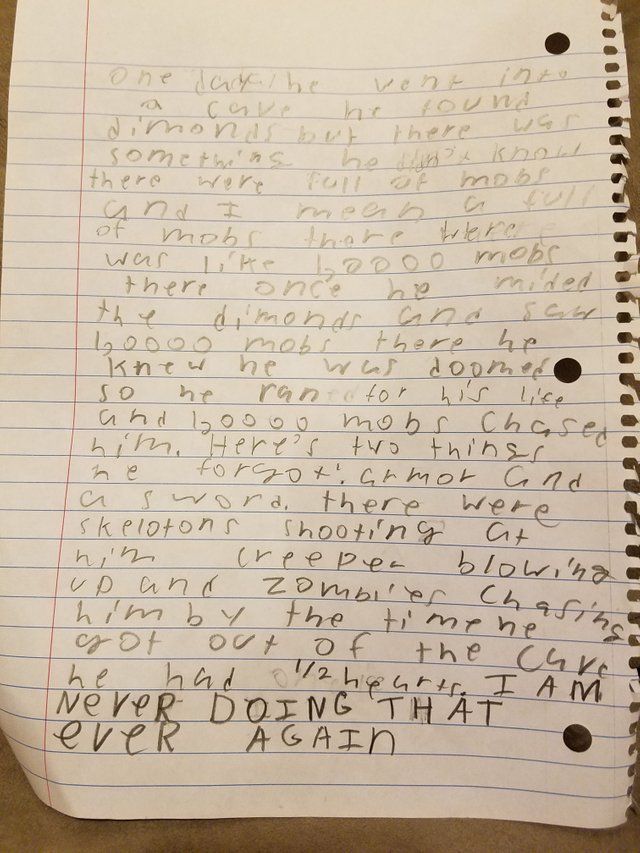 One day he went into
a cave he found
dimonds but there was
something he didn't know
there were full of mobs
and I mean a full
of mobs there were
was like 60000 mobs
there once he mided
the dimonds and saw
60000 mobs there he
knew he was doomed
so he ran for his life
and 60000 mobs chased
him. Here's two things
he forgot: armor and
a sword. there were
skelotons shooting at
him creeper blowing
up and zombies chasing
him by the time he
got out of the cave
he had 0 1/2 hearts. I AM
NeveR DOING THAT
eveR AGAIn